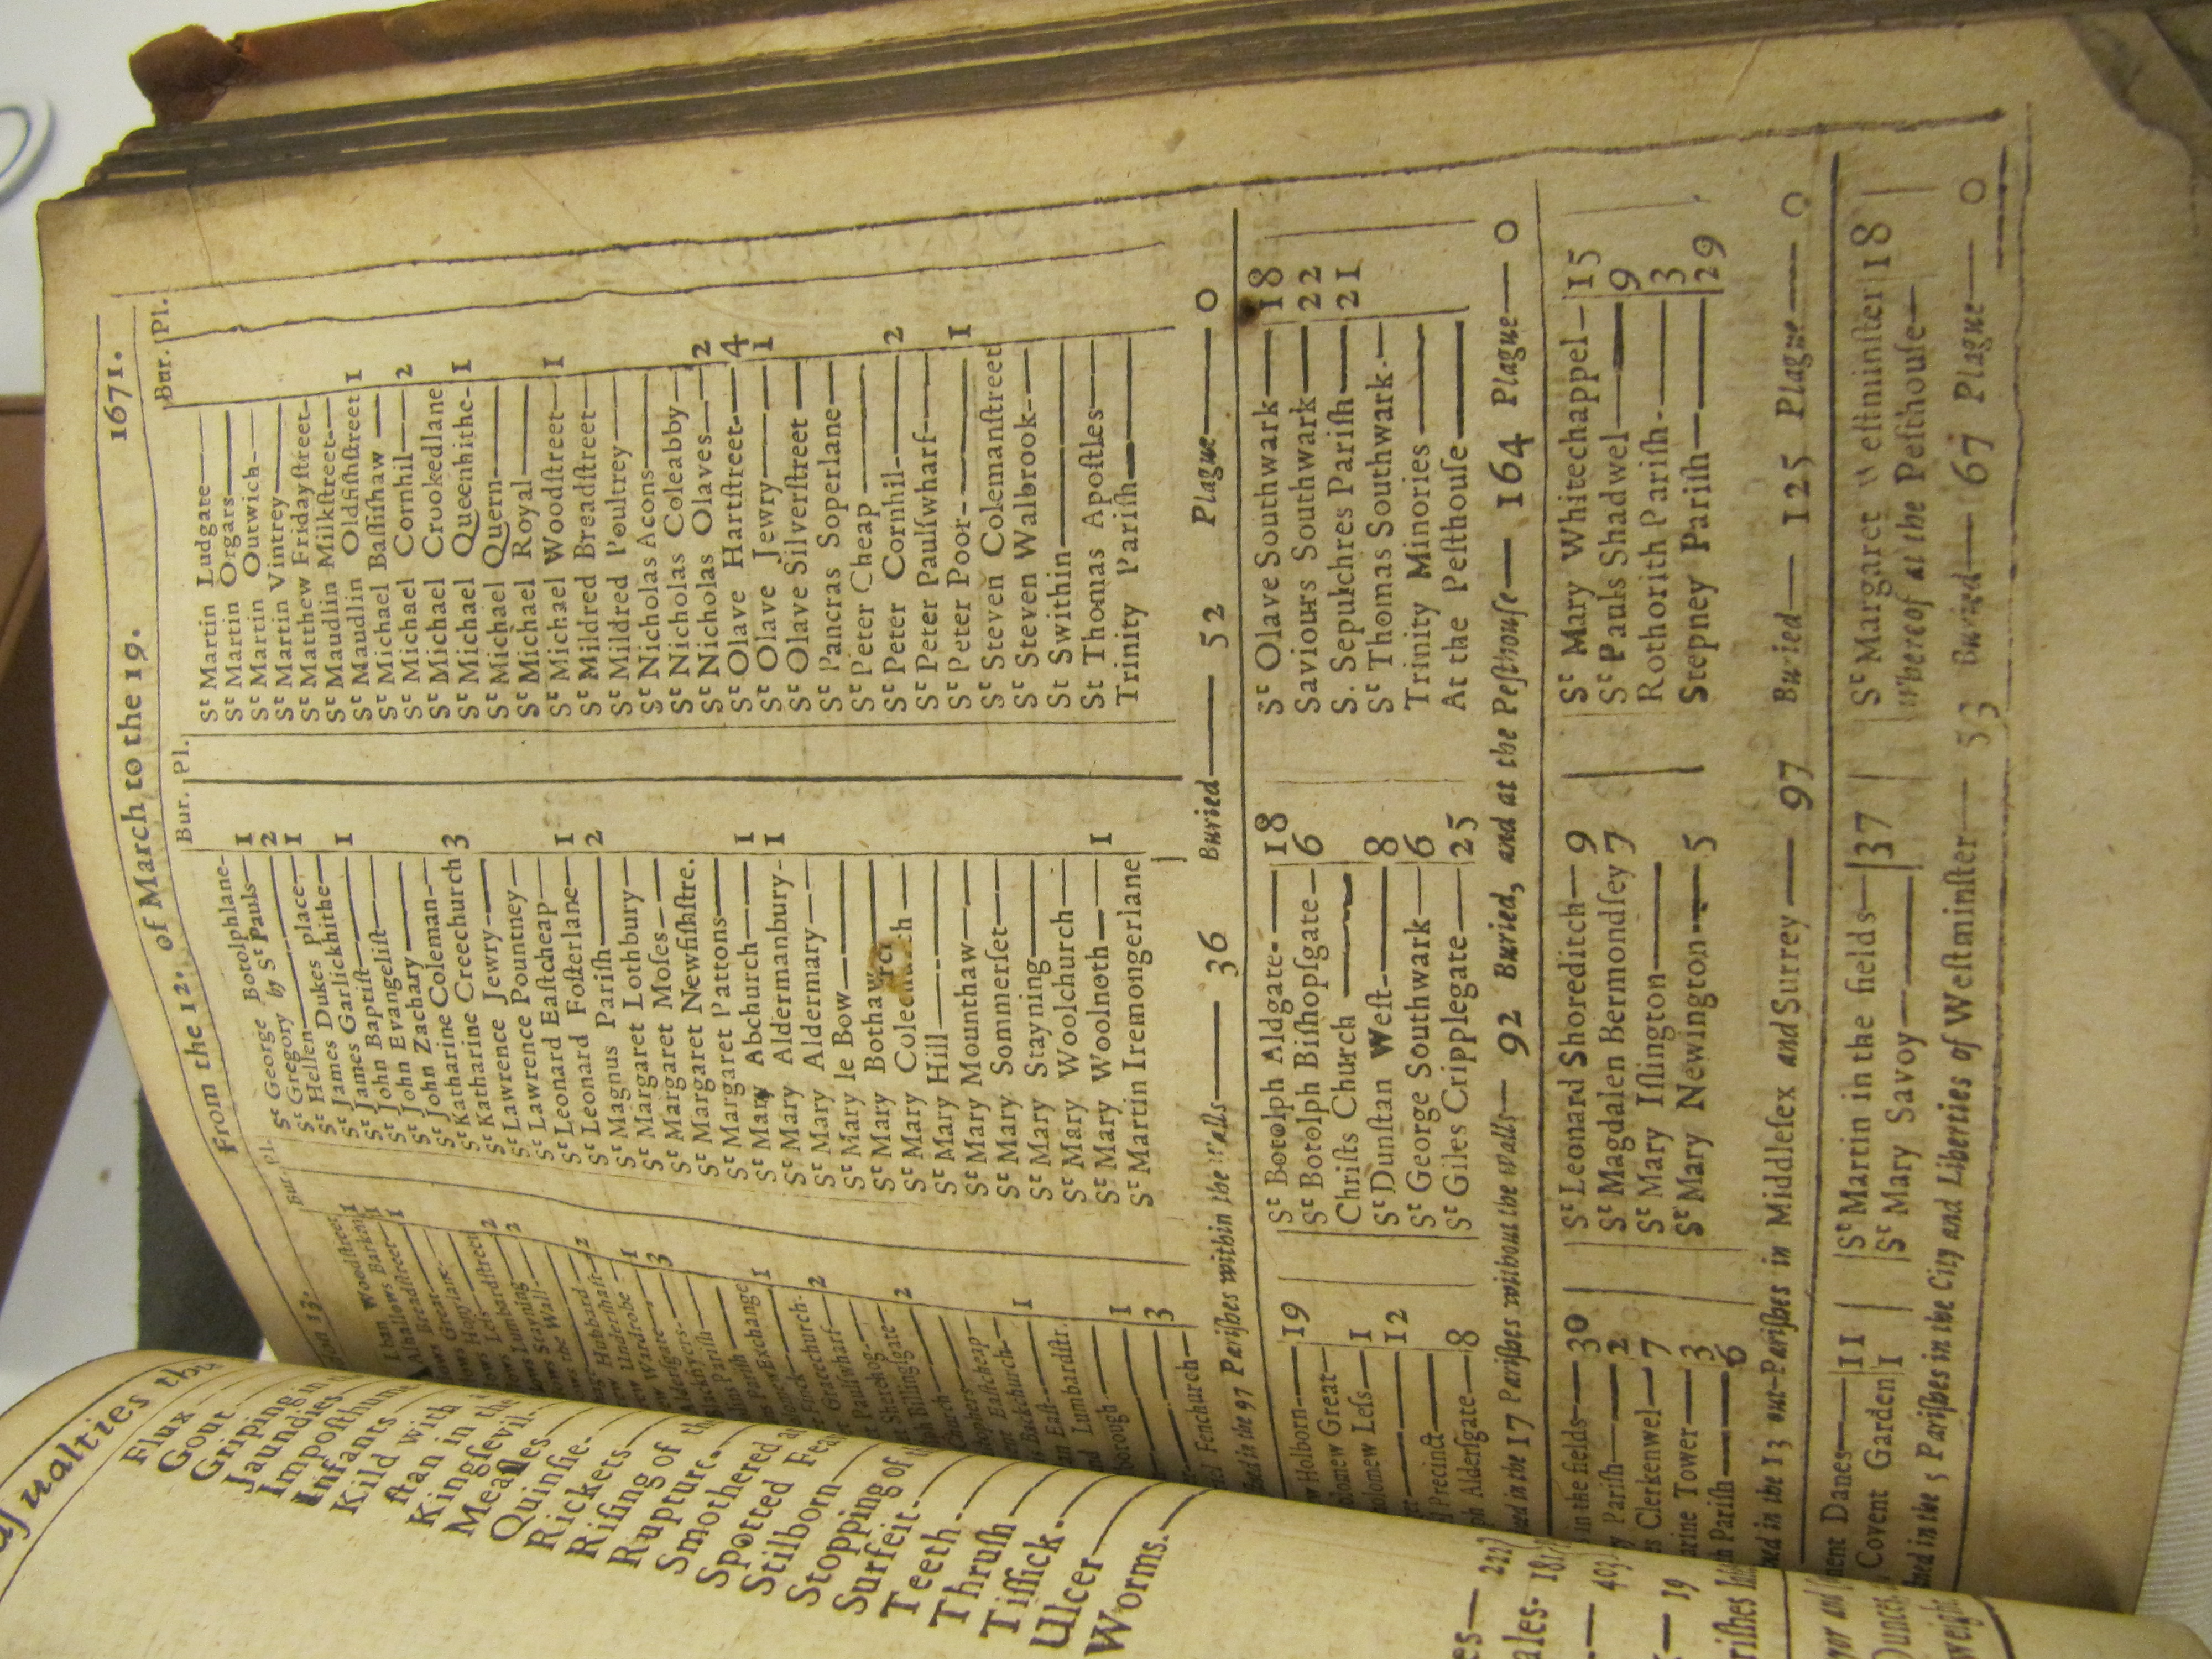 From the 12. of March to the 19. 1671.
Bur. Pl.
Woodstreet 1
Alhallows Barkin 1
Breadstreet 1
Great
Hony lane
Less
Lumbardstreet 2
Stayning 2
the Wall
Hubbard 2
Undershaft
Wardrobe 1
Aldersgate 3
Blackfryers
Parish
Parish
Exchange 1
Gracechurch 2
Paulswharf
Sherehog
Billingsgate 2
Church
Eastcheap
Backchurch 1
East
Lumbardstr.
1
3
Fenchurch
Bur. Pl.
St George Botolphlane
St Gregory by St Pauls 1
St Hellen 2
St James Dukes place 1
St James Garlickhithe
St John Baptist 1
St John Evangelist
St John Zachary
St Katharine Coleman
St Katharine Creechurch 3
St Lawrence Jewry
St Lawrence Pountney
St Leonard Eastcheap
St Leonard Fosterlane 1
St Magnus Parish 2
St Margaret Lothbury
St Margaret Moses
St Margaret Newfishstre.
St Margaret Pattons
St Mary Abchurch 1
St Mary Aldermanbury 1
St Mary Aldermary
St Mary le Bow
St Mary Bothaw
St Mary Colechurch
St Mary Hill
St Mary Mounthaw
St Mary Sommerset
St Mary Stayning
St Mary Woolchurch
St Mary Woolnoth 1
St Martin Iremongerlane
Bur. Pl.
St Martin Ludgate
St Martin Orgars
St Martin Outwich
St Martin Vintrey
St Matthew Fridayſtreet
St Maudlin Milkſtreet
St Maudlin Oldfiſhſtreet 1
St Michael Baſſiſhaw
St Michael Cornhil 2
St Michael Crookedlane
St Michael Queenhithe 1
St Michael Quern
St Michael Royal
St Michael Woodſtreet 1
St Mildred Breadſtreet
St Mildred Poultrey
St Nicholas Acons
St Nicholas Coleabby
St Nicholas Olaves 2
St Olave Hartſtreet 4
St Olave Jewry 1
St Olave Silverſtreet
St Pancras Soperlane
St Peter Cheap
St Peter Cornhil 2
St Peter Paulſwharf
St Peter Poor 1
St Steven Colemanſtreet
St Steven Walbrook
St Swithin
St Thomas Apoſtles
Trinity Pariſh
in the 97 Pariſhes within the Walls 36 Buried 52 Plague 0
Holborn 19
Great
Leſs 1
12
Precinct
Alderſgate 8
St Botolph Aldgate 18
St Botolph Biſhopſgate 6
Chriſts Church
St Dunſtan Weſt 8
St George Southwark 6
St Giles Cripplegate 25
St Olave Southwark 18
Saviours Southwark 22
S. Sepulchres Pariſh 21
St Thomas Southwark
Trinity Minories
At the Peſthouſe
in the 17 Pariſhes without the Walls 92 Buried, and at the Peſthouſe 164 Plague 0
in the fields 30
Pariſh 2
Clerkenwel 7
Tower 3
Pariſh 6
St Leonard Shoreditch 9
St Magdalen Bermondſey 7
St Mary Iſlington
St Mary Newington 5
St Mary Whitechappel 15
St Pauls Shadwel 9
Rothorith Pariſh 3
Stepney Pariſh 29
in the 13 out-Pariſhes in Middleſex and Surrey 97 Buried 125 Plague 0
Danes 11
Covent Garden 1
St Martin in the fields 37
St Mary Savoy
St Margaret Weſtminſter 18
whereof at the Peſthouſe
in the 5 Pariſhes in the City and Liberties of Weſtminſter 53 Buried 67 Plague 0
Flux
Gout
Griping in
Jaundies
Impoſthume
Infants
Kild with
ſtan in the
Kingſevil
Meaſles
Quinſie
Rickets
Riſing of the
Rupture
Smothered
Spotted Fea
Stilborn
Stopping of
Surfeit
Teeth
Thruſh
Tiſſick
Ulcer
Worms.
222
403
19